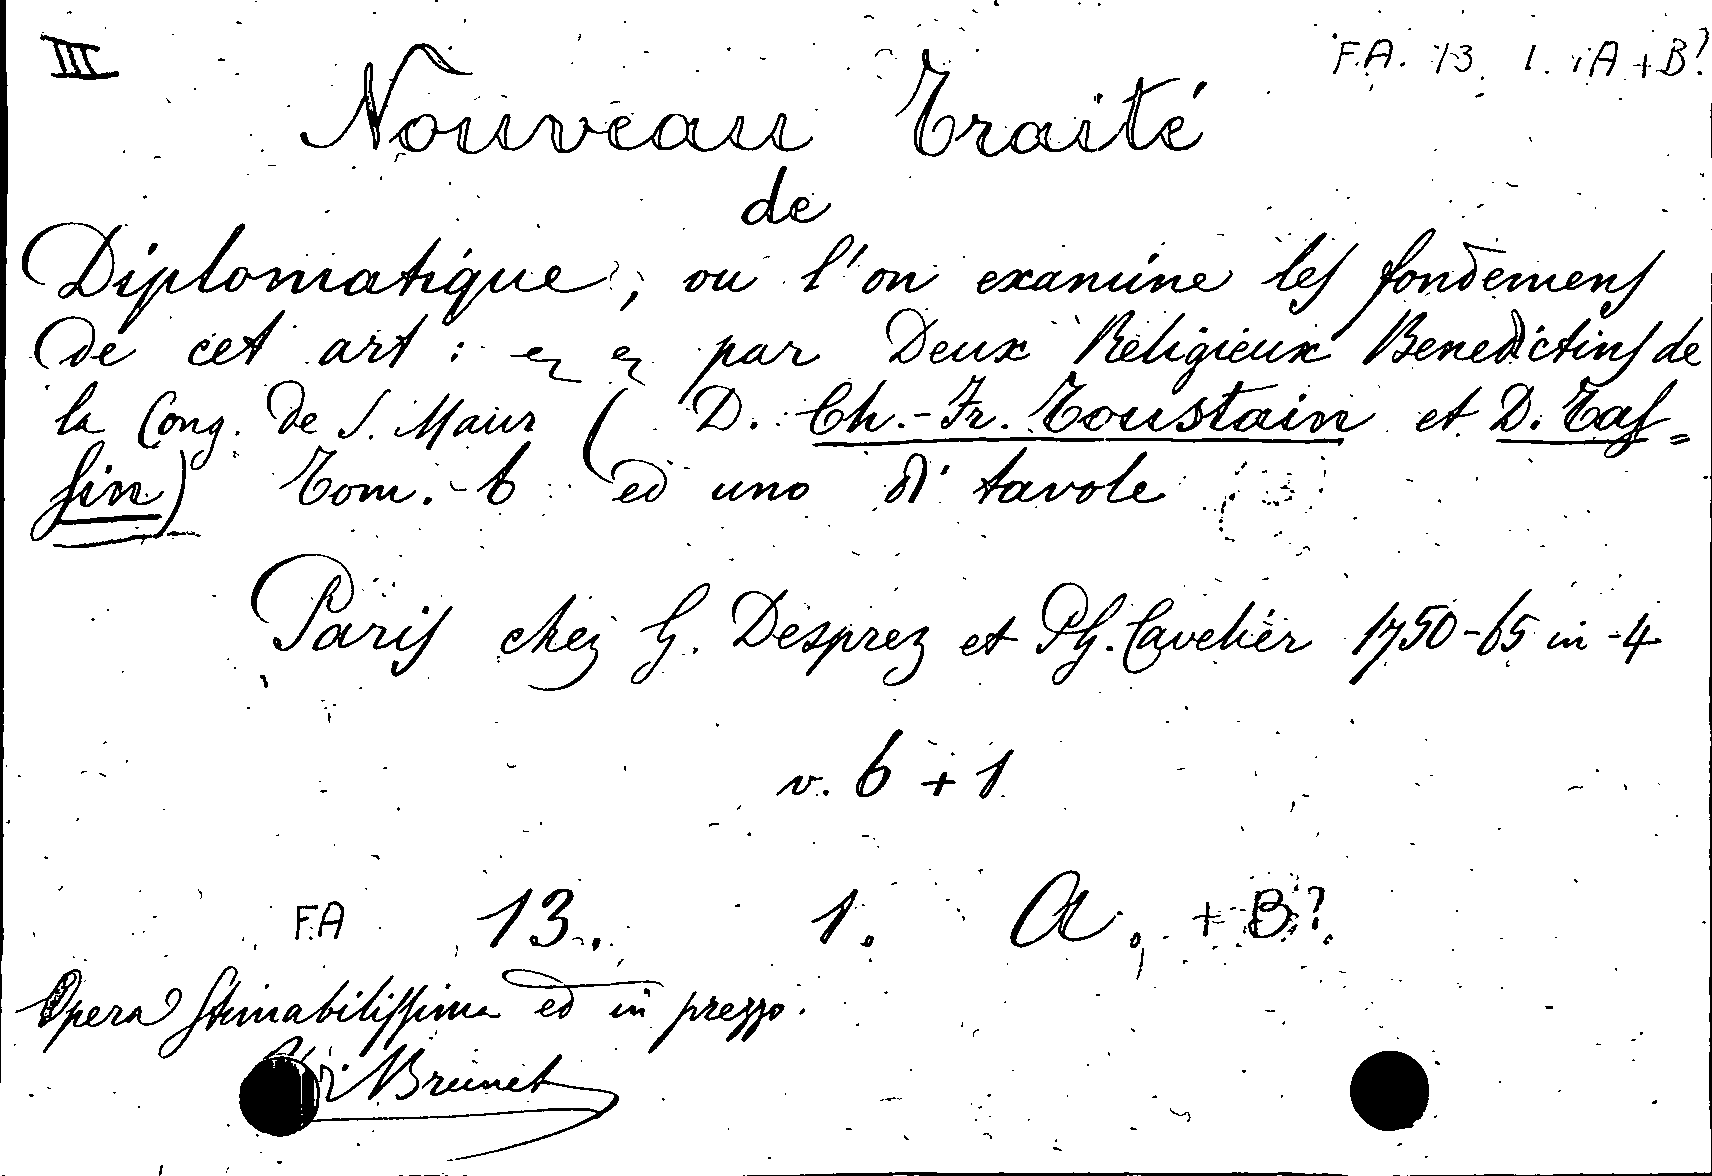 III
F.A. 13. 1. A + B?
Nouveau Traité
de
Diplomatique, ou l'on examine les fondemens
de cet art : par Deux Religieux Benedictins de
la Cong. de S. Maur ( D. Ch.-Fr. Toustain et D. Tas=
sin) Tom. 6 ed uno di tavole
Paris chez G. Desprez et Ph. Cavelier 1750-65 in-4
v. 6 + 1
F.A 13. 1. A, + B?
Opera stimabilissima ed in prezzo.
Brunet